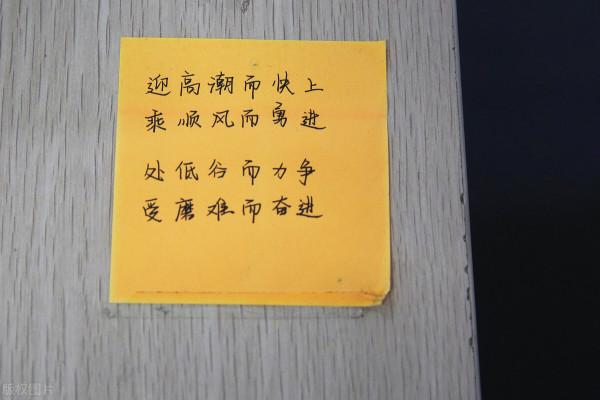 迎高潮而快上
乘顺风而勇进
处低谷而力争
受磨难而奋进
版权图片